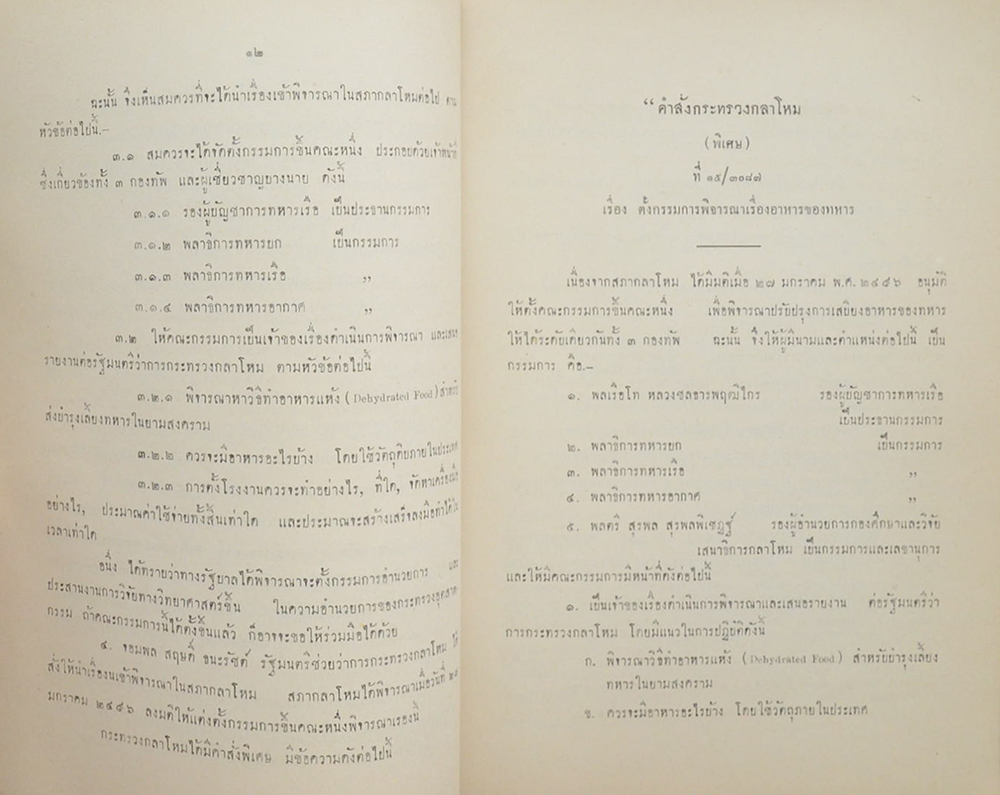 ๑๒
ฉะนั้น จึงเห็นสมควรที่จะได้นำเรื่องเข้าพิจารณาในสภากลาโหมต่อไป ตาม
หัวข้อต่อไปนี้.–
๓.๑ สมควรจะได้จัดตั้งกรรมการขึ้นคณะหนึ่ง ประกอบด้วยเจ้าหน้าที่
ซึ่งเกี่ยวข้องทั้ง ๓ กองทัพ และผู้เชี่ยวชาญบางนาย ดังนี้
๓.๑.๑ รองผู้บัญชาการทหารเรือ เป็นประธานกรรมการ
๓.๑.๒ พลาธิการทหารบก เป็นกรรมการ
๓.๑.๓ พลาธิการทหารเรือ ,,
๓.๑.๔ พลาธิการทหารอากาศ ,,
๓.๒ ให้คณะกรรมการเป็นเจ้าของเรื่องดำเนินการพิจารณา และเสนอ
รายงานต่อรัฐมนตรีว่าการกระทรวงกลาโหม ตามหัวข้อต่อไปนี้
๓.๒.๑ พิจารณาหาวิธีทำอาหารแห้ง (Dehydrated Food) สำหรับ
ส่งบำรุงเลี้ยงทหารในยามสงคราม
๓.๒.๒ ควรจะมีอาหารอะไรบ้าง โดยใช้วัตถุดิบภายในประเทศ
๓.๒.๓ การตั้งโรงงานควรจะทำอย่างไร, ที่ใด, จัดหาเครื่องมือ
อย่างไร, ประมาณค่าใช้จ่ายทั้งสิ้นเท่าใด และประมาณจะสร้างเสร็จลงมือทำได้ใน
เวลาเท่าใด
อนึ่ง ได้ทราบว่าทางรัฐบาลได้พิจารณาจะตั้งกรรมการอำนวยการ และ
ประสานงานการวิจัยทางวิทยาศาสตร์ขึ้น ในความอำนวยการของกระทรวงอุตสาห
กรรม ถ้าคณะกรรมการนี้ได้ตั้งขึ้นแล้ว ก็อาจจะขอให้ร่วมมือได้ด้วย
๔. จอมพล สฤษดิ์ ธนะรัชต์ รัฐมนตรีช่วยว่าการกระทรวงกลาโหม ได้
สั่งให้นำเรื่องนเข้าพิจารณาในสภากลาโหม สภากลาโหมได้พิจารณาเมื่อวันที่ ๒๗
มกราคม ๒๔๙๖ ลงมติให้แต่งตั้งกรรมการขึ้นคณะหนึ่งพิจารณาเรองนี้
กระทรวงกลาโหมได้มีคำสั่งพิเศษ มีข้อความดังต่อไปนี้
“ คำสั่งกระทรวงกลาโหม
(พิเศษ)
ที่ ๑๕/๓๑๘๗
เรื่อง ตั้งกรรมการพิจารณาเรื่องอาหารของทหาร
เนื่องจากสภากลาโหม ได้มีมติเมื่อ ๒๗ มกราคม พ.ศ. ๒๔๙๖ อนุมัติ
ให้ตั้งคณะกรรมการขึ้นคณะหนึ่ง เพื่อพิจารณาปรับปรุงการเสบียงอาหารของทหาร
ให้ได้ระดับเดียวกันทั้ง ๓ กองทัพ ฉะนั้น จึงให้ผู้มีนามและตำแหน่งต่อไปนี้ เป็น
กรรมการ คือ.–
๑. พลเรือโท หลวงชลธารพฤฒิไกร รองผู้บัญชาการทหารเรือ
เป็นประธานกรรมการ
๒. พลาธิการทหารบก เป็นกรรมการ
๓. พลาธิการทหารเรือ ,,
๔. พลาธิการทหารอากาศ ,,
๕. พลตรี สุรพล สุรพลพิเชฏฐ์ รองผู้อำนวยการกองศึกษาและวิจัย
เสนาธิการกลาโหม เป็นกรรมการและเลขานุการ
และให้มีคณะกรรมการมีหน้าที่ดังต่อไปนี้
๑. เป็นเจ้าของเรื่องดำเนินการพิจารณาและเสนอรายงาน ต่อรัฐมนตรีว่า
การกระทรวงกลาโหม โดยมีแนวในการปฏิบัติดังนี้
ก. พิจารณาวิธีทำอาหารแห้ง (Dehydrated Food) สำหรับบำรุงเลี้ยง
ทหารในยามสงคราม
ข. ควรจะมีอาหารอะไรบ้าง โดยใช้วัตถุภายในประเทศ